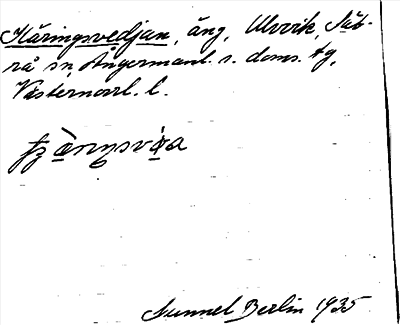 Käringsvedjan, äng, Ulvvik, Säb-
rå sn, Ångermanl. s. doms. tg,
Västernorrl. l.
Gunnel Berlin 1935